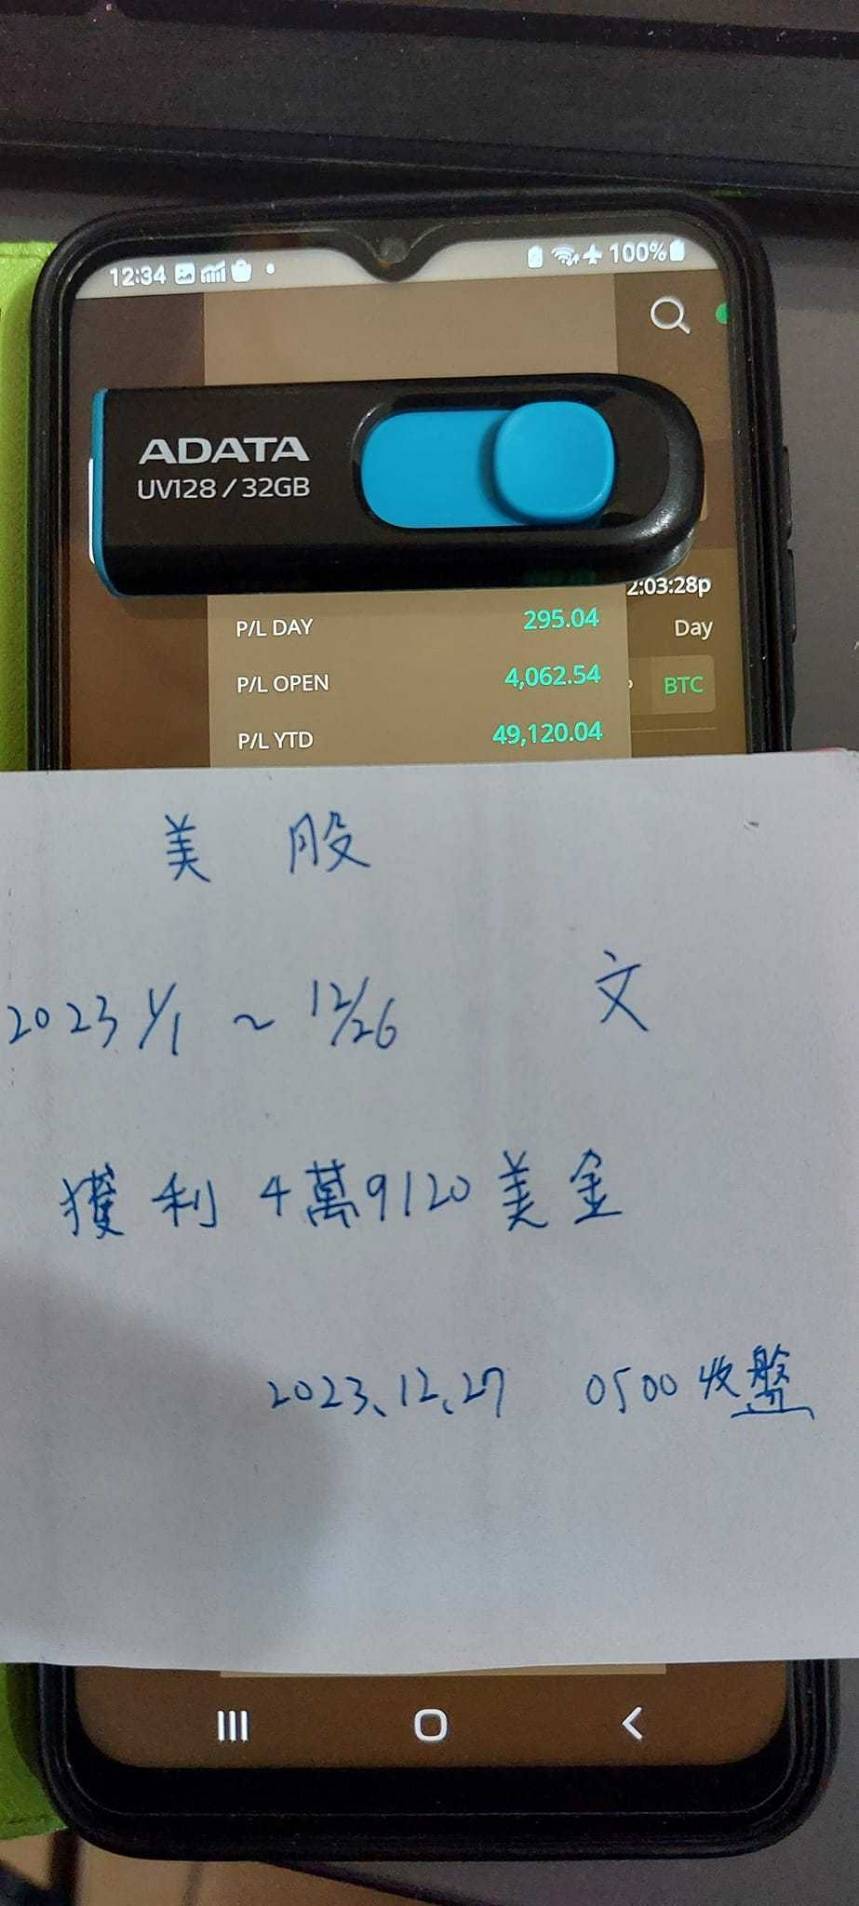 12:34 100%
ADATA
UV128 / 32GB
2:03:28p
P/L DAY 295.04 Day
P/L OPEN 4,062.54 BTC
P/L YTD 49,120.04
美股
2023 1/1 ~ 12/26 文
獲利4萬9120美金
2023、12、27 0500收盤